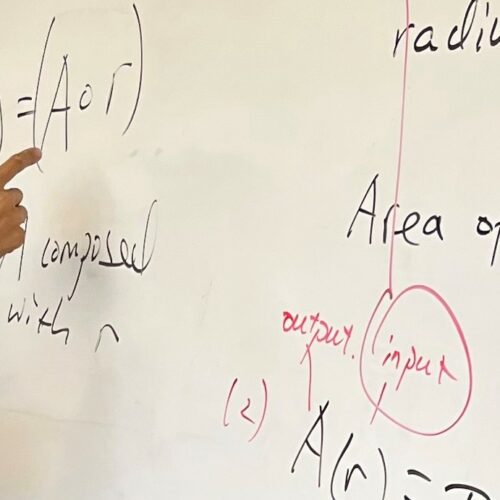 ) = (A∘r)
A composed
with r
radiu
Area of
output.
input
(2)
A(r) =